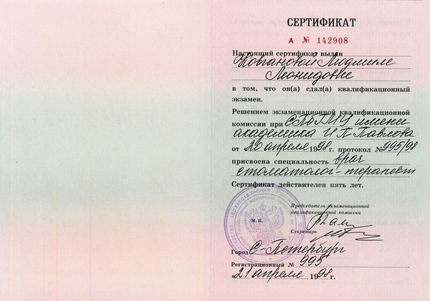 СЕРТИФИКАТ
А № 142908
Настоящий сертификат выдан
Ковгановой Людмиле
Леонидовне
в том, что он(а) сдал(а) квалификационный
экзамен.
Решением экзаменационной квалификационной
комиссии при СПбГМУ имени
академика И.П. Павлова
от 20 апреля 1998 г. протокол № 995/98
присвоена специальность врач
стоматолог-терапевт
Сертификат действителен пять лет.
Председатель экзаменационной
квалификационной комиссии
М.П.
Секретарь
Город С-Петербург
Регистрационный № 995
21 апреля 1998 г.